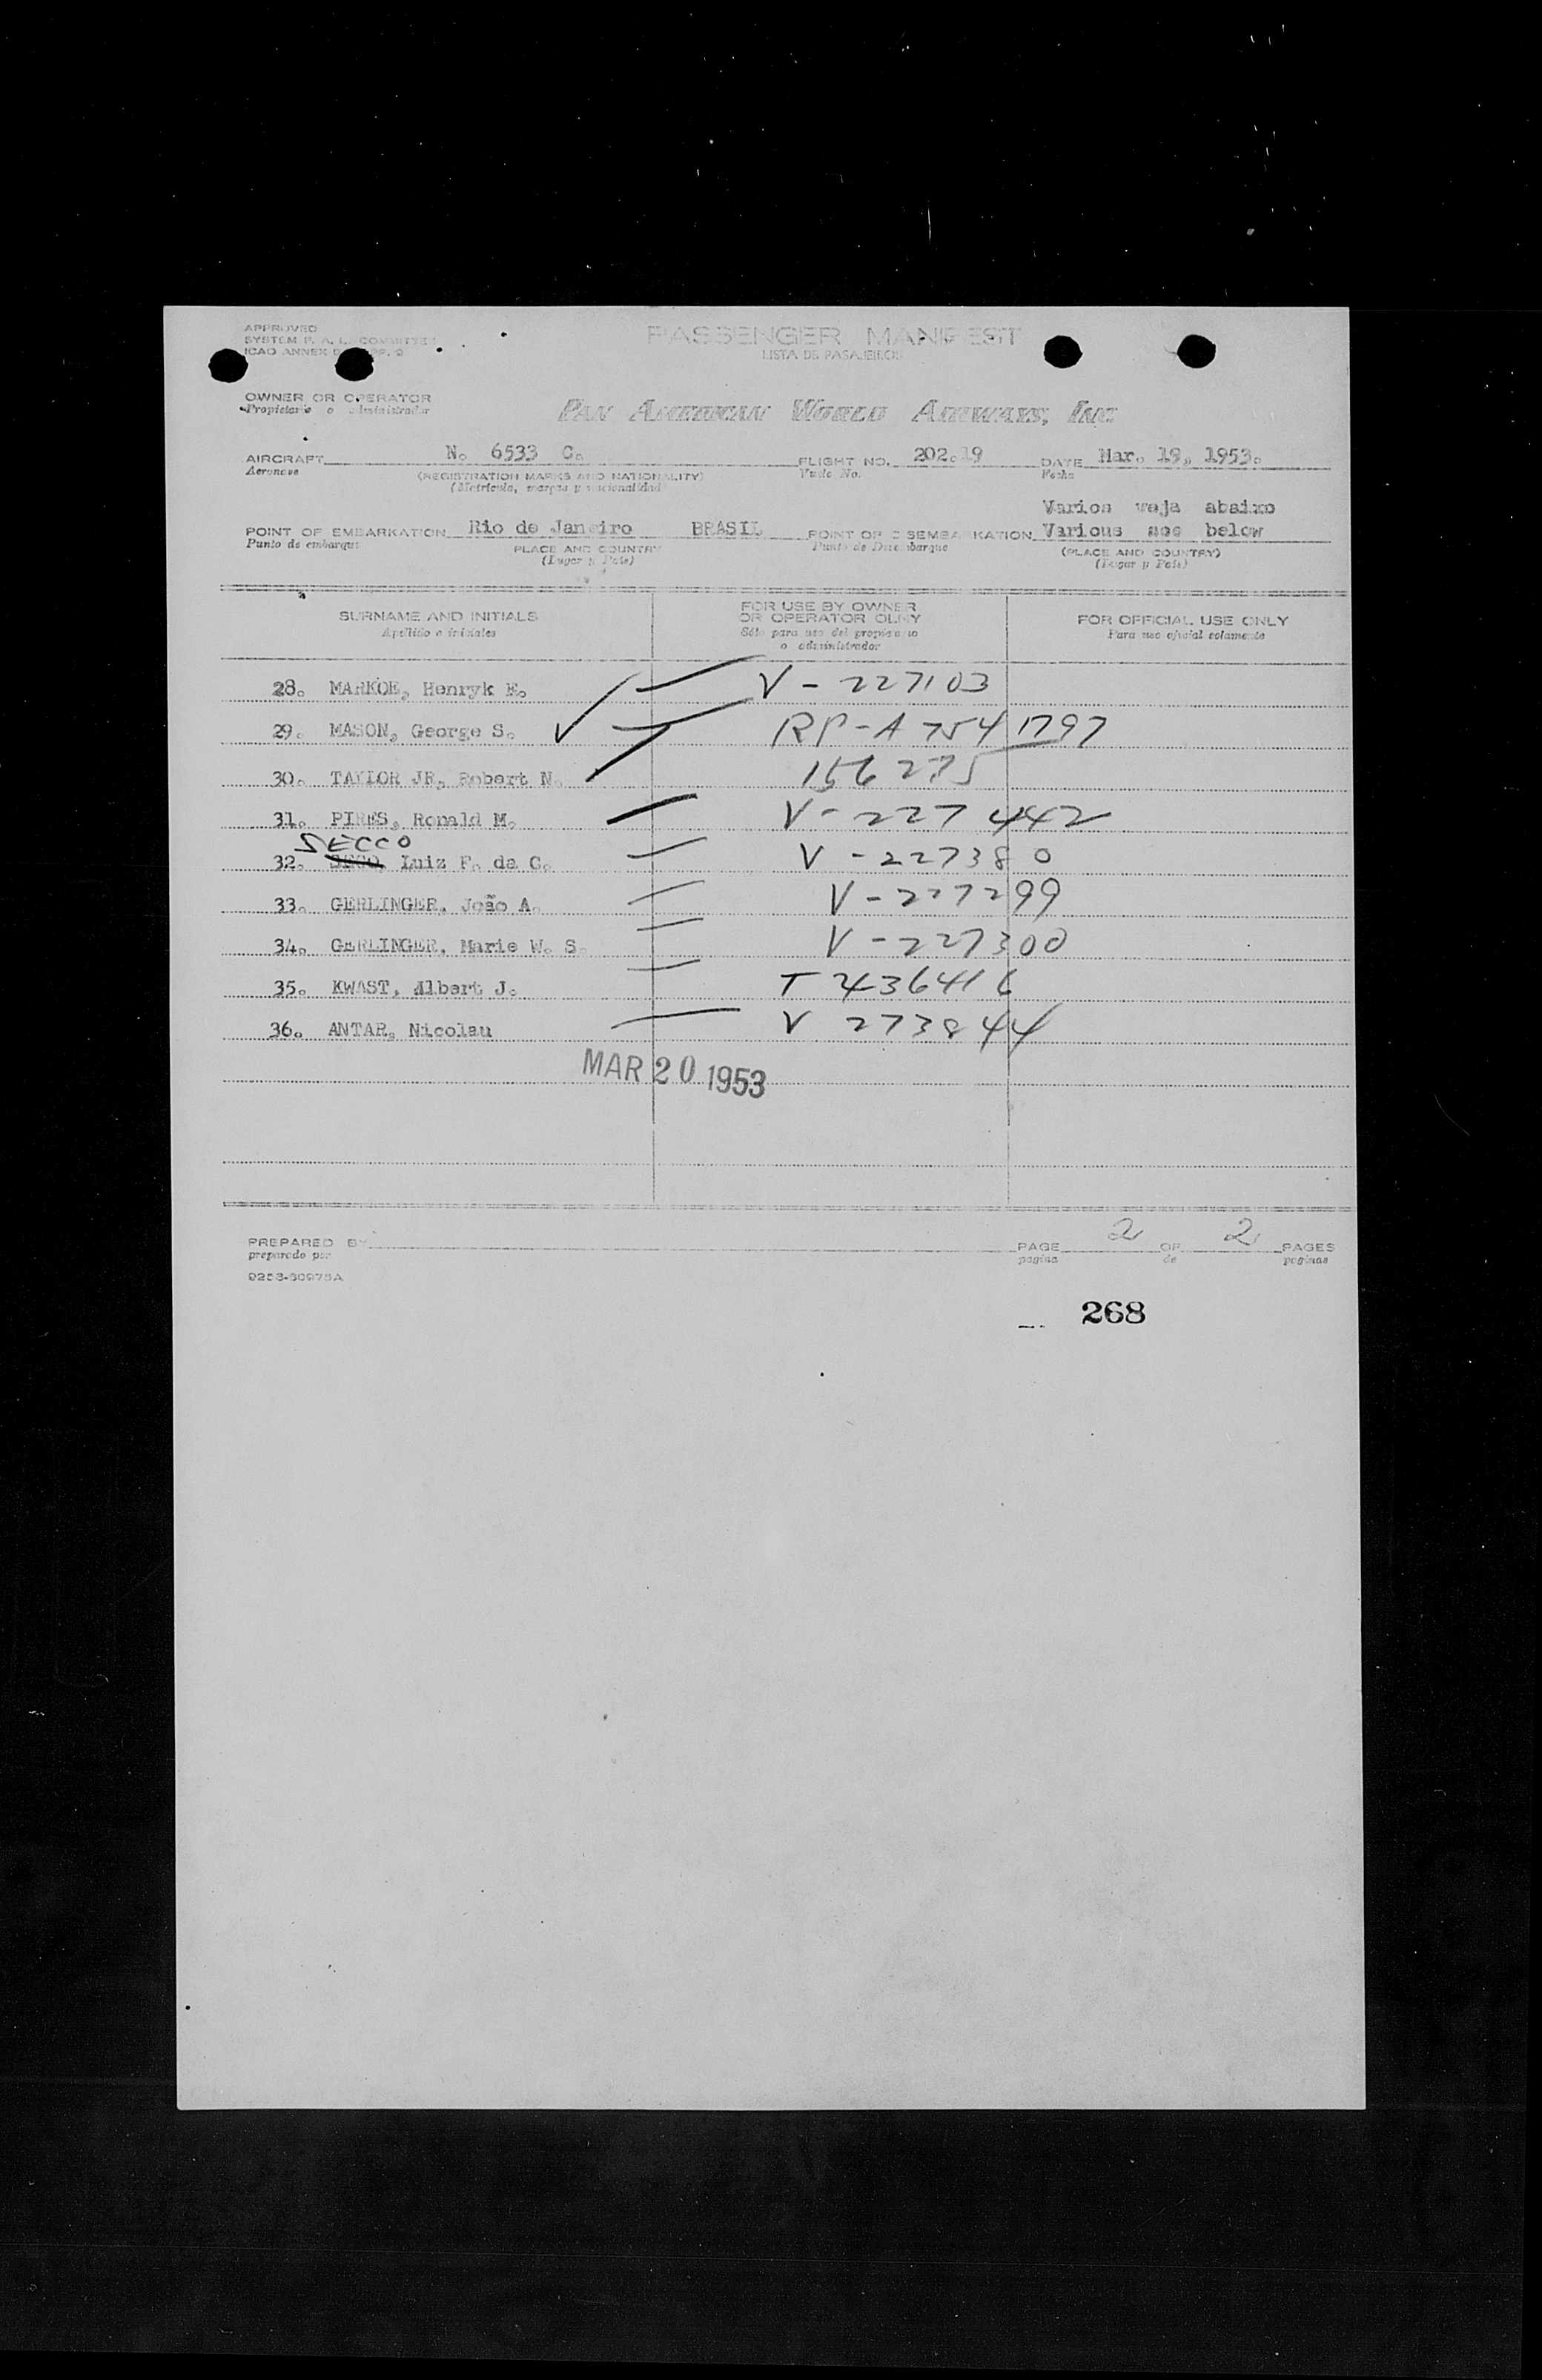 APPROVED PASSENGER MANIFEST
SYSTEM F. A. L. COMMITTEE
ICAO ANNEX 9
LISTA DE PASAJEROS
OWNER OR OPERATOR
Propietario o administrador
PAN AMERICAN WORLD AIRWAYS, INC
AIRCRAFT N. 6533 C. FLIGHT NO. 202.19 DATE Mar. 19, 1953.
Aeronave (REGISTRATION MARKS AND NATIONALITY) Vuelo No. Fecha
(Matricula, marcas y nacionalidad)
Varios veja abaixo
POINT OF EMBARKATION Rio de Janeiro BRASIL POINT OF DISEMBARKATION Various see below
Punto de embarque PLACE AND COUNTRY Punto de Desembarque (PLACE AND COUNTRY)
(Lugar y País) (Lugar y País)
SURNAME AND INITIALS
Apellido e iniciales
FOR USE BY OWNER
OR OPERATOR OLNY
Sólo para uso del propietario
o administrador
FOR OFFICIAL USE ONLY
Para uso oficial solamente
28. MARKOE, Henryk E. V-227103
29. MASON, George S. RP-A 754 1797
30. TAYLOR JR, Robert N. 156275
31. PIRES, Ronald M. V-227442
SECCO
32. SECO, Luiz F. da C. V-227380
33. GERLINGER, João A. V-227299
34. GERLINGER, Marie W. S. V-227300
35. KWAST, Albert J. T 436416
36. ANTAR, Nicolau V 273844
MAR 20 1953
PREPARED BY PAGE 2 OF 2 PAGES
preparado por pagina de paginas
9253-60975A
268